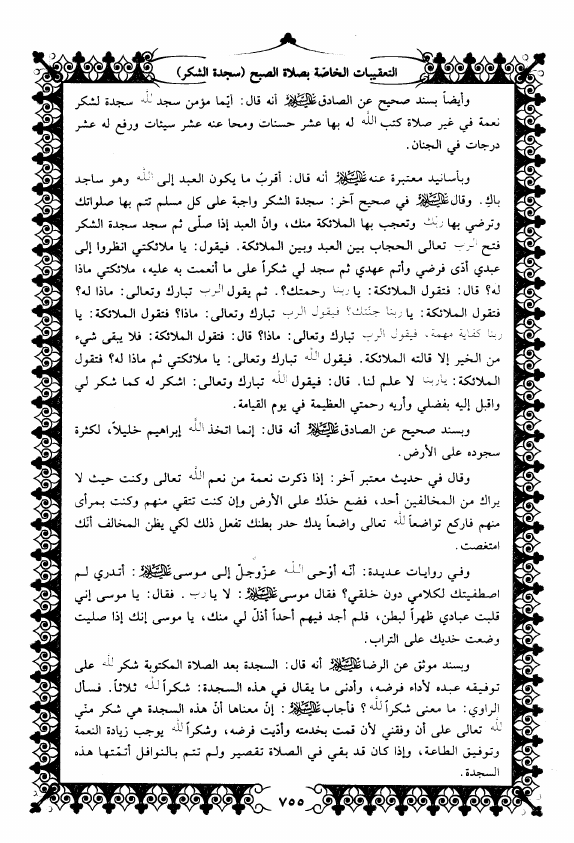 التعقيبات الخاصّة بصلاة الصبح (سجدة الشكر)
وأيضاً بسند صحيح عن الصادق عليه السلام أنه قال: أيّما مؤمن سجد لله سجدة لشكر
نعمة في غير صلاة كتب الله له بها عشر حسنات ومحا عنه عشر سيئات ورفع له عشر
درجات في الجنان.
وبأسانيد معتبرة عنه عليه السلام أنه قال: أقربُ ما يكون العبد إلى الله وهو ساجد
باكٍ. وقال عليه السلام في صحيح آخر: سجدة الشكر واجبة على كل مسلم تتم بها صلواتك
وترضي بها ربّك وتعجب بها الملائكة منك، وانّ العبد إذا صلّى ثم سجد سجدة الشكر
فتح الرب تعالى الحجاب بين العبد وبين الملائكة. فيقول: يا ملائكتي انظروا إلى
عبدي أدّى فرضي وأتم عهدي ثم سجد لي شكراً على ما أنعمت به عليه، ملائكتي ماذا
له؟ قال: فتقول الملائكة: يا ربنا رحمتك؟. ثم يقول الرب تبارك وتعالى: ماذا له؟
فتقول الملائكة: يا ربنا جنّتك؟ فيقول الرب تبارك وتعالى: ماذا؟ فتقول الملائكة: يا
ربنا كفاية مهمة، فيقول الرب تبارك وتعالى: ماذا؟ قال: فتقول الملائكة: فلا يبقى شيء
من الخير إلا قالته الملائكة. فيقول الله تبارك وتعالى: يا ملائكتي ثم ماذا له؟ فتقول
الملائكة: يا ربنا لا علم لنا. قال: فيقول الله تبارك وتعالى: اشكر له كما شكر لي
واقبل إليه بفضلي وأريه رحمتي العظيمة في يوم القيامة.
وبسند صحيح عن الصادق عليه السلام أنه قال: إنما اتخذ الله إبراهيم خليلاً، لكثرة
سجوده على الأرض.
وقال في حديث معتبر آخر: إذا ذكرت نعمة من نعم الله تعالى وكنت حيث لا
يراك من المخالفين أحد، فضع خدّك على الأرض وإن كنت تتقي منهم وكنت بمرأى
منهم فاركع تواضعاً لله تعالى واضعاً يدك حدر بطنك تفعل ذلك لكي يظن المخالف أنّك
امتغصت.
وفي روايات عديدة: أنّه أوْحى الله عزّوجلّ إلى موسى عليه السلام: أتدري لم
اصطفيتك لكلامي دون خلقي؟ فقال موسى عليه السلام: لا يا رب. فقال: يا موسى إني
قلبت عبادي ظهراً لبطن، فلم أجد فيهم أحداً أذلّ لي منك، يا موسى إنك إذا صليت
وضعت خديك على التراب.
وبسند موثق عن الرضا عليه السلام أنه قال: السجدة بعد الصلاة المكتوبة شكر لله على
توفيقه عبده لأداء فرضه، وأدنى ما يقال في هذه السجدة: شكراً لله ثلاثاً. فسأل
الراوي: ما معنى شكراً لله؟ فأجاب عليه السلام: إنّ معناها أنّ هذه السجدة هي شكر منّي
لله تعالى على أن وفقني لأن قمت بخدمته وأدّيت فرضه، وشكراً لله يوجب زيادة النعمة
وتوفيق الطاعة، وإذا كان قد بقي في الصلاة تقصير ولم تتم بالنوافل أتمّتها هذه
السجدة.
٧٥٥